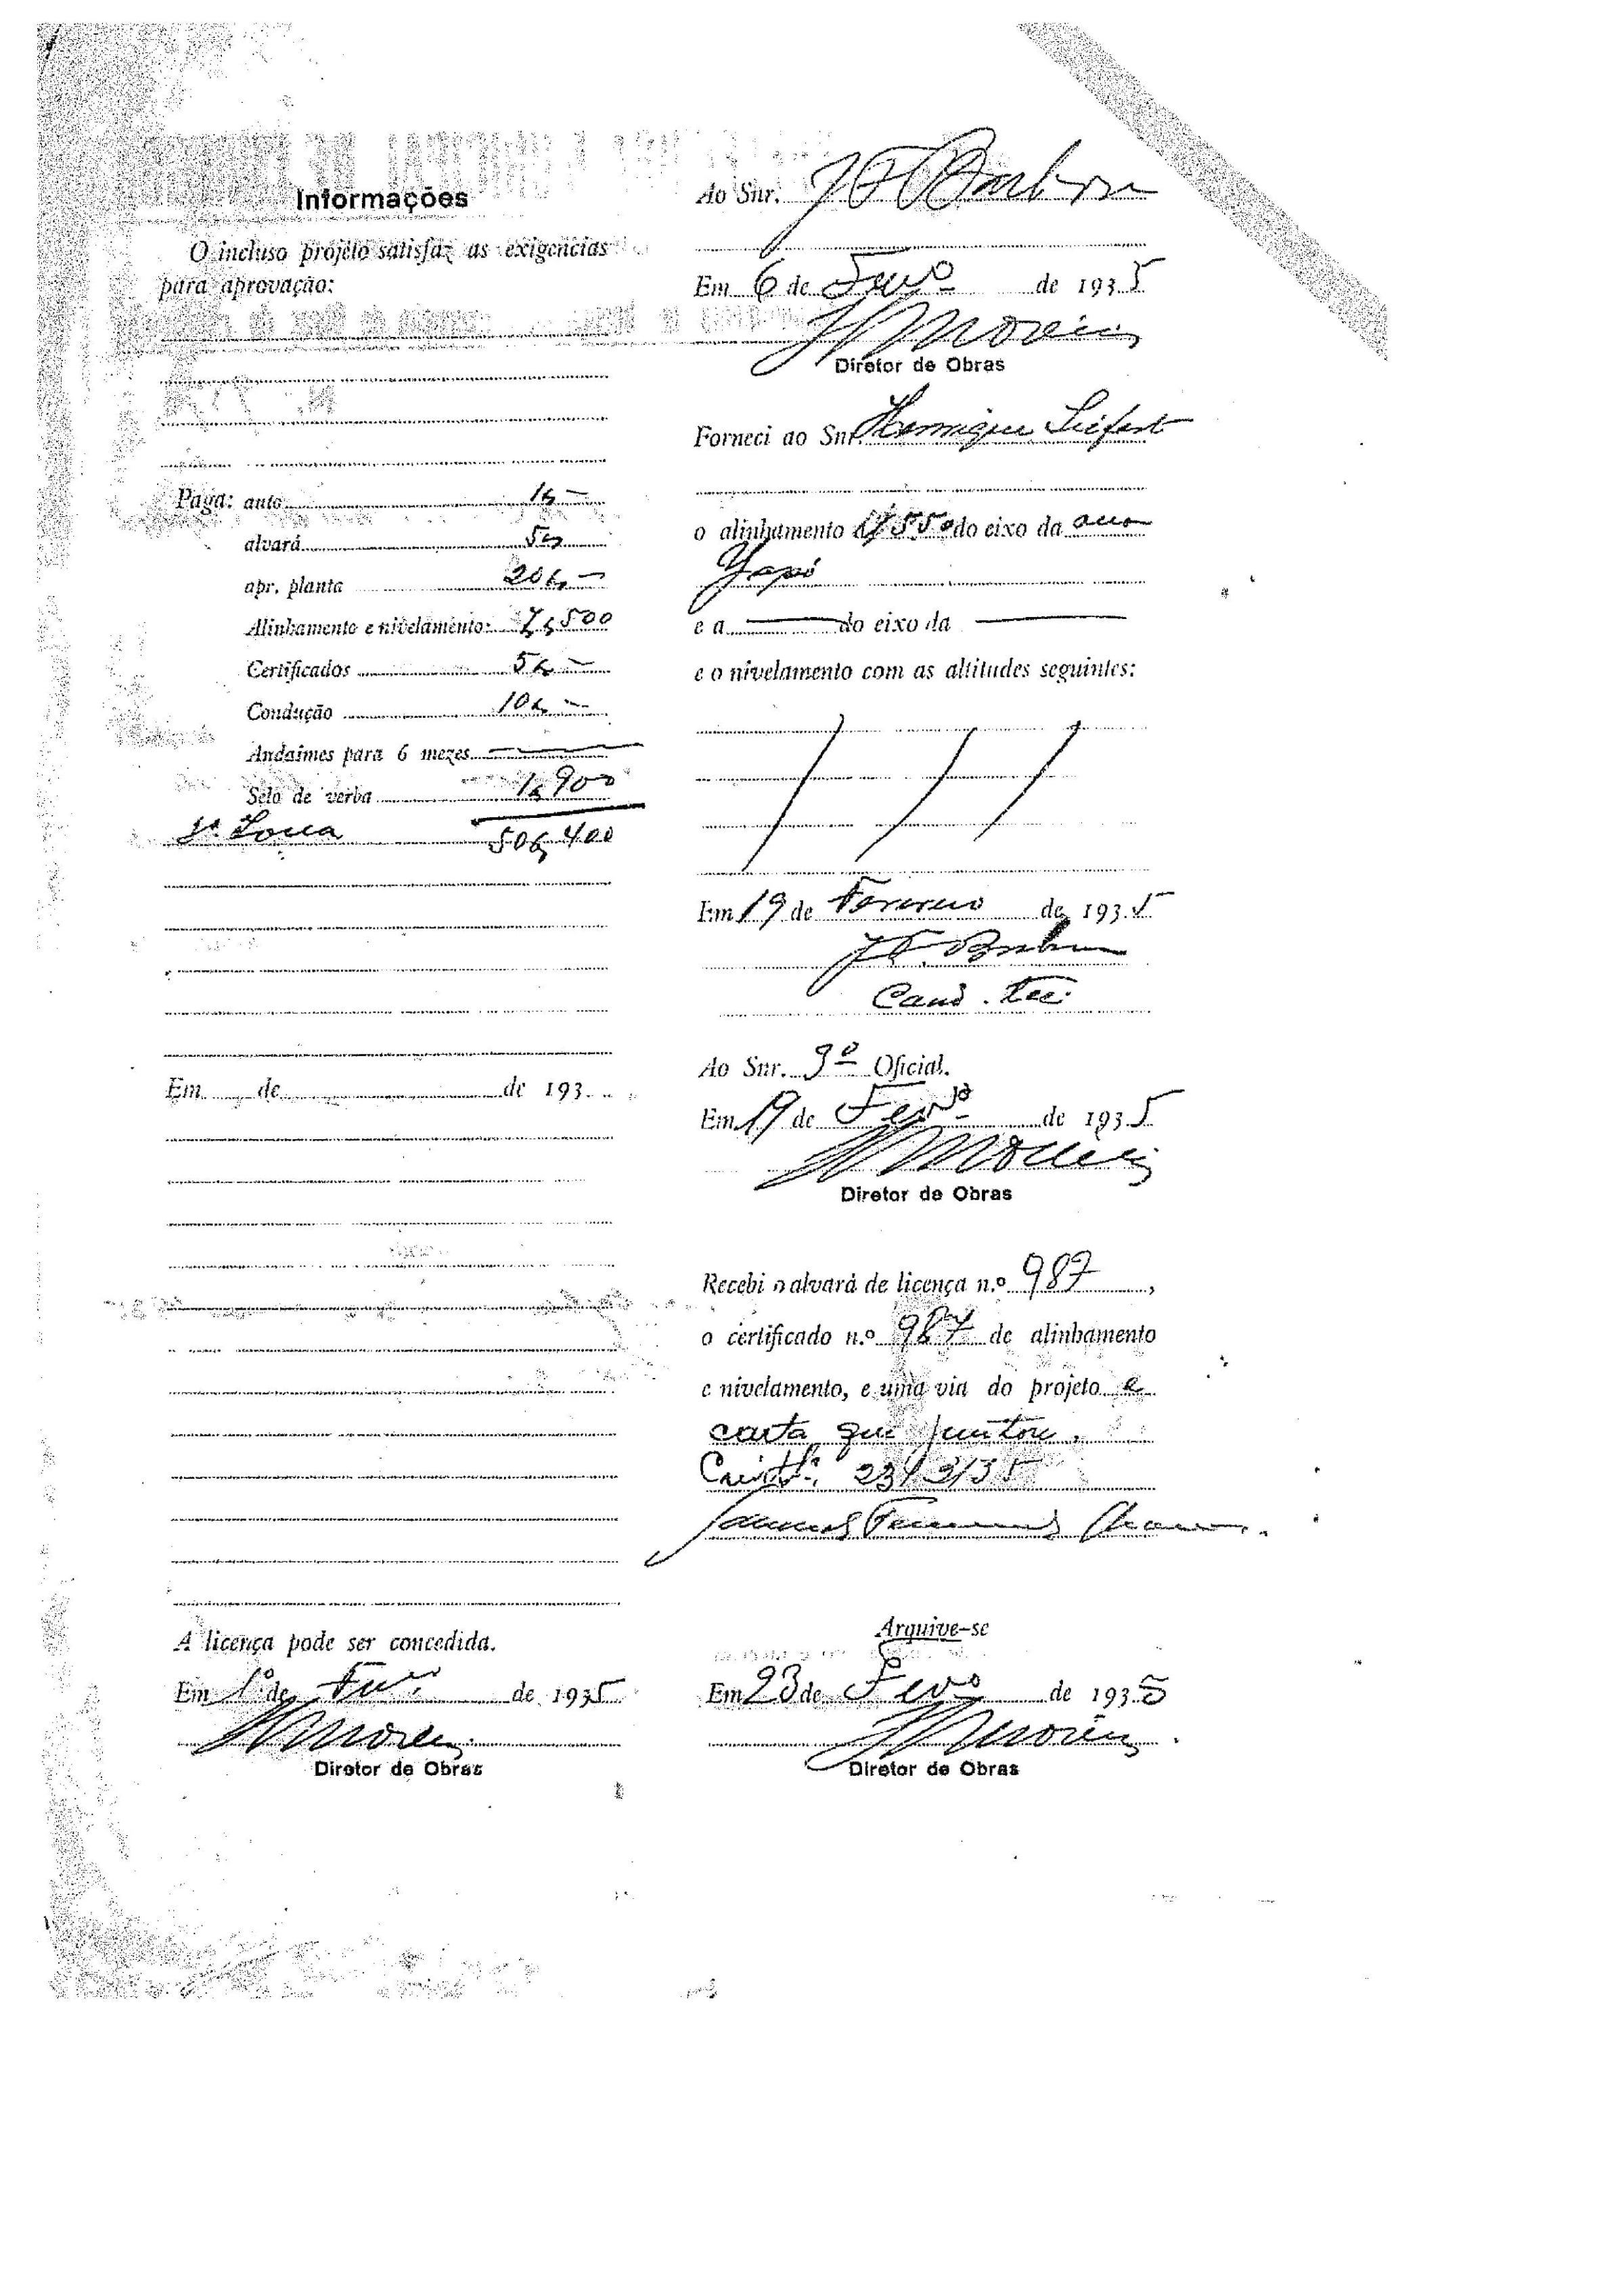 Informações
O incluso projéto satisfaz as exigencias
para aprovação:
Paga: auto 1$ —
alvará 5$
apr. planta 20$ —
Alinhamento e nivelamento: 7$500
Certificados 5$ —
Condução 10$ —
Andaimes para 6 mezes —
Selo de verba 1$900
50$400
Em de de 193
A licença pode ser concedida.
Em 1º de Fevº de 1935
Diretor de Obras
Ao Snr. Barbosa
Em 6 de Fevº de 1935
Moreira
Diretor de Obras
Forneci ao Snr. Henrique
o alinhamento a 550 do eixo da
e a — do eixo da —
e o nivelamento com as altitudes seguintes:
Em 19 de Fevereiro de 1935
Cand. Tec.
Ao Snr. 3º Oficial.
Em 19 de Fevº de 1935
Moreira
Diretor de Obras
Recebi o alvará de licença n.º 987,
o certificado n.º 987 de alinhamento
e nivelamento, e uma via do projeto e
carta que juntou.
23/2/35
Arquive-se
Em 23 de Fevº de 1935
Moreira
Diretor de Obras